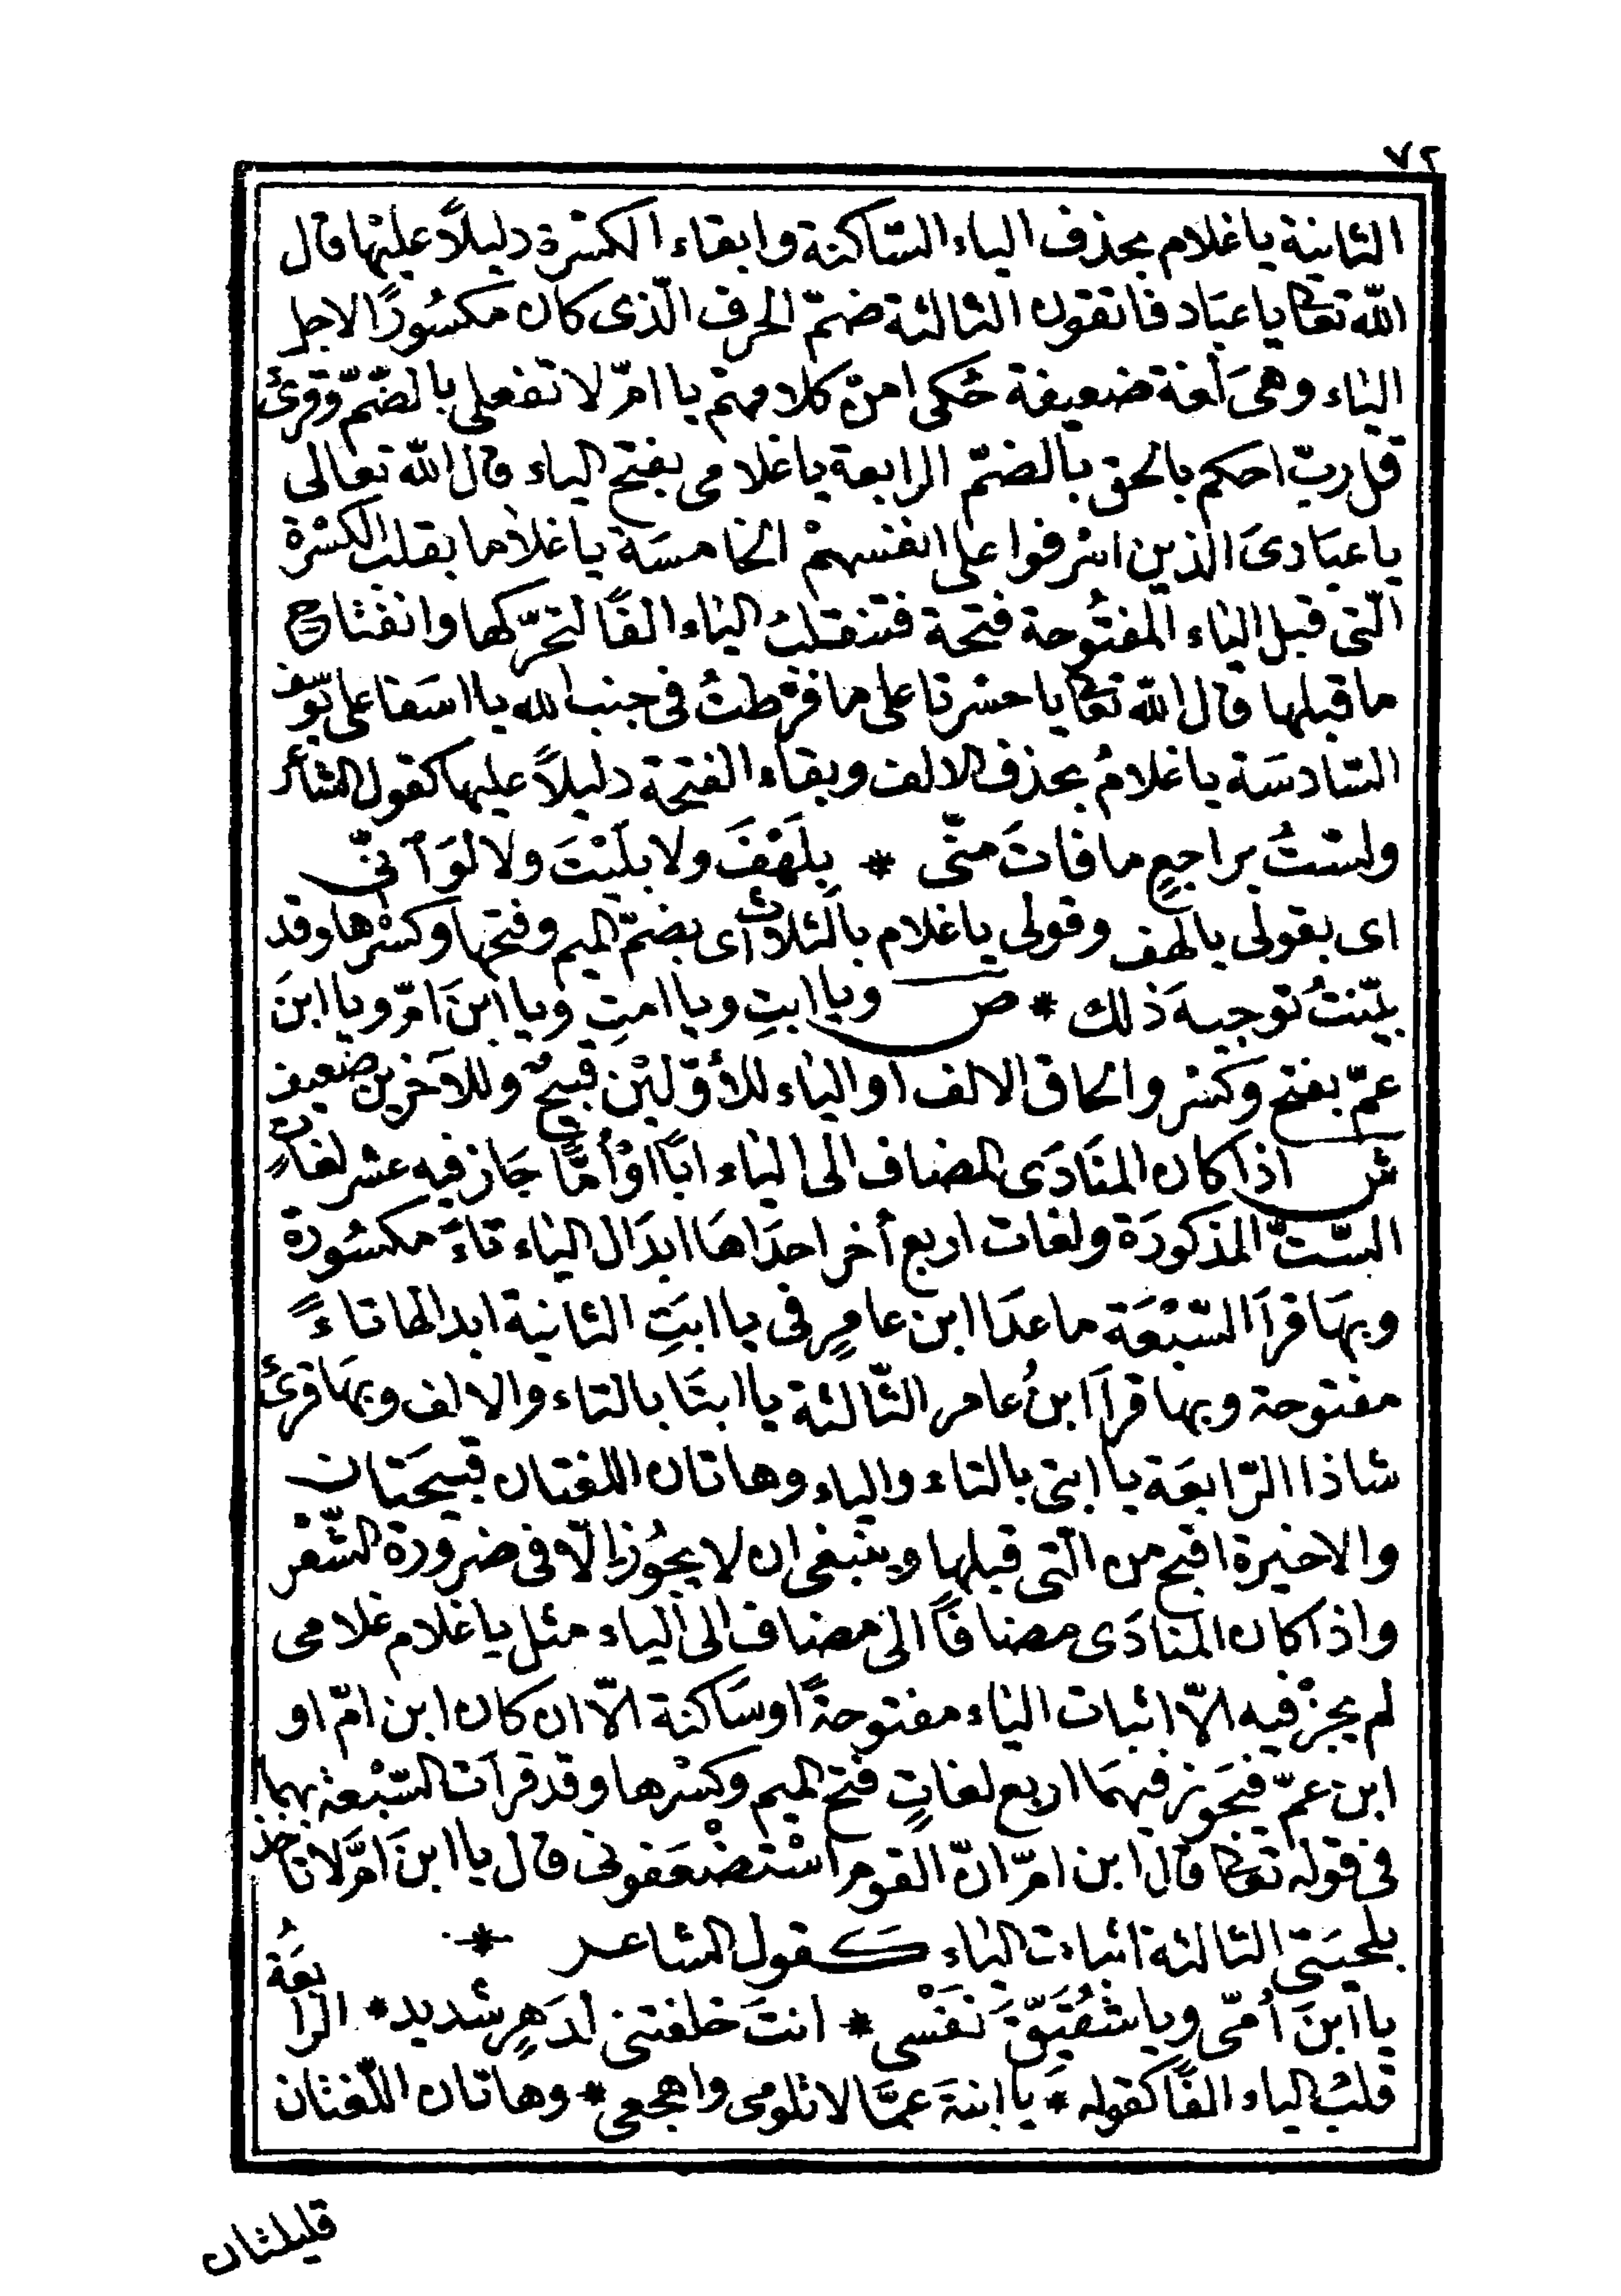 ٧٢
الثانية ياغلام بحذف الياء السّاكنة وابقاء الكسْرة دليلاً عليْها قال
اللّه تعا ياعبَاد فاتقون الثالثة ضمّ الحرف الّذى كان مكسُورًا لاجل
الياء وهىَ لغة ضعيفة حُكى من كلامهم يا امّ لا تفعلى بالضّمّ وقرئ
قل ربّ احكم بالحق بالضمّ الرابعة ياغلامى بفتح الياء قال اللّه تعالى
ياعبَادىَ الذين اسْرفوا على انفسهمْ الخامسَة ياغلاما بقلب الكسْرة
الّتى قبل الياء المفتُوحة فتحة فتنقلبُ الياء الفًا لتحرّكها وانفتاح
ماقبلها قال اللّه تعا ياحسْرتا على مافرّطتُ فى جنب الله يا اسَفا على يوسف
السّادسَة ياغلامُ بحذف الالف وبقاء الفتحة دليلاً عليها كقول الشاعر
ولسْتُ براجعٍ مافاتَ منّى * بِلَهْفَ ولا بلَيْتَ ولا لوَ اَنّى
اى بقولى يالهف وقولى ياغلام بالثلاث اى بضمّ الميم وفتحها وكسْرها وقد
بيّنتُ توجيهَ ذلك * ص ويا ابتِ ويا امتِ ويا ابنَ امّ ويا ابنَ
عمّ بفتح وكسْر والحاق الالف او الياء للأوّليْن قبيحٌ وللآخرين ضعيف
ش اذا كان المنَادَى المضاف الى الياء ابًا اوْ أمًّا جَاز فيه عشر لغاتٍ
السّتّ المذكورَة ولغات اربع أخر احدَاهَا ابدَال الياء تاءً مكسُورة
وبهَا قرأَ السّبْعَة ماعدَا ابن عامرٍ فى يا ابتِ الثانية ابدالها تاءً
مفتوحة وبها قرأَ ابنُ عامر الثّالثة يا ابتَا بالتاء والالف وبهَا قرئ
شاذا الرّابعَة يا ابتى بالتاء والياء وهاتان اللغتان قبيحَتان
والاخيرة اقبح من الّتى قبلها وينبغى ان لا يجُوز إلّا فى ضرورة الشّعْر
واذا كان المنادَى مضافًا الى مضاف الى الياء مثل ياغلام غلامى
لم يجزْ فيه الّا اثبات الياء مفتوحةً او سَاكنة الّا ان كان ابن امّ او
ابن عمّ فيَجوز فيهمَا اربع لغاتٍ فتح الميم وكسْرها وقد قرأت السّبْعة بهما
فى قوله تعا قال ابن امّ انّ القوم اسْتضْعَفونى قال يا ابنَ امَّ لا تاخذ
بلحيَتى الثالثة اثبات الياء كقول الشاعر *
يا ابنَ اُمّى ويا شُقَيّقَ نَفْسى * انتَ خلفتنى لدَهرٍ شديد * الرابعَة
قلبُ الياء الفًا كقوله * يا ابنةَ عمَّا لا تلومى واهجعى * وهاتان اللّغتان
قليلتان